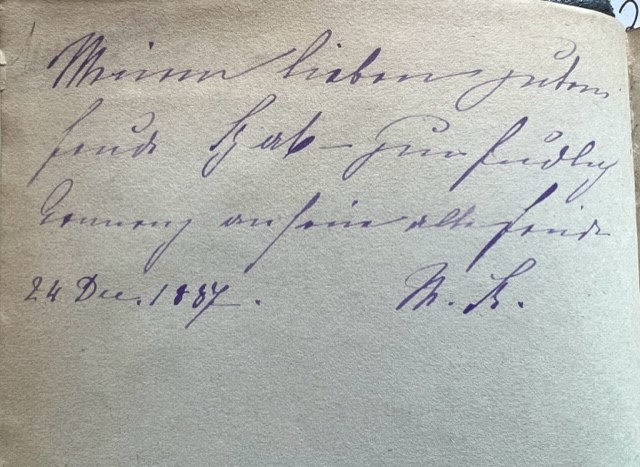 Meinem lieben guten
Freunde zur freundlichen
Erinnerung an seine alte Freundin
24 Dec. 1887. M. K.